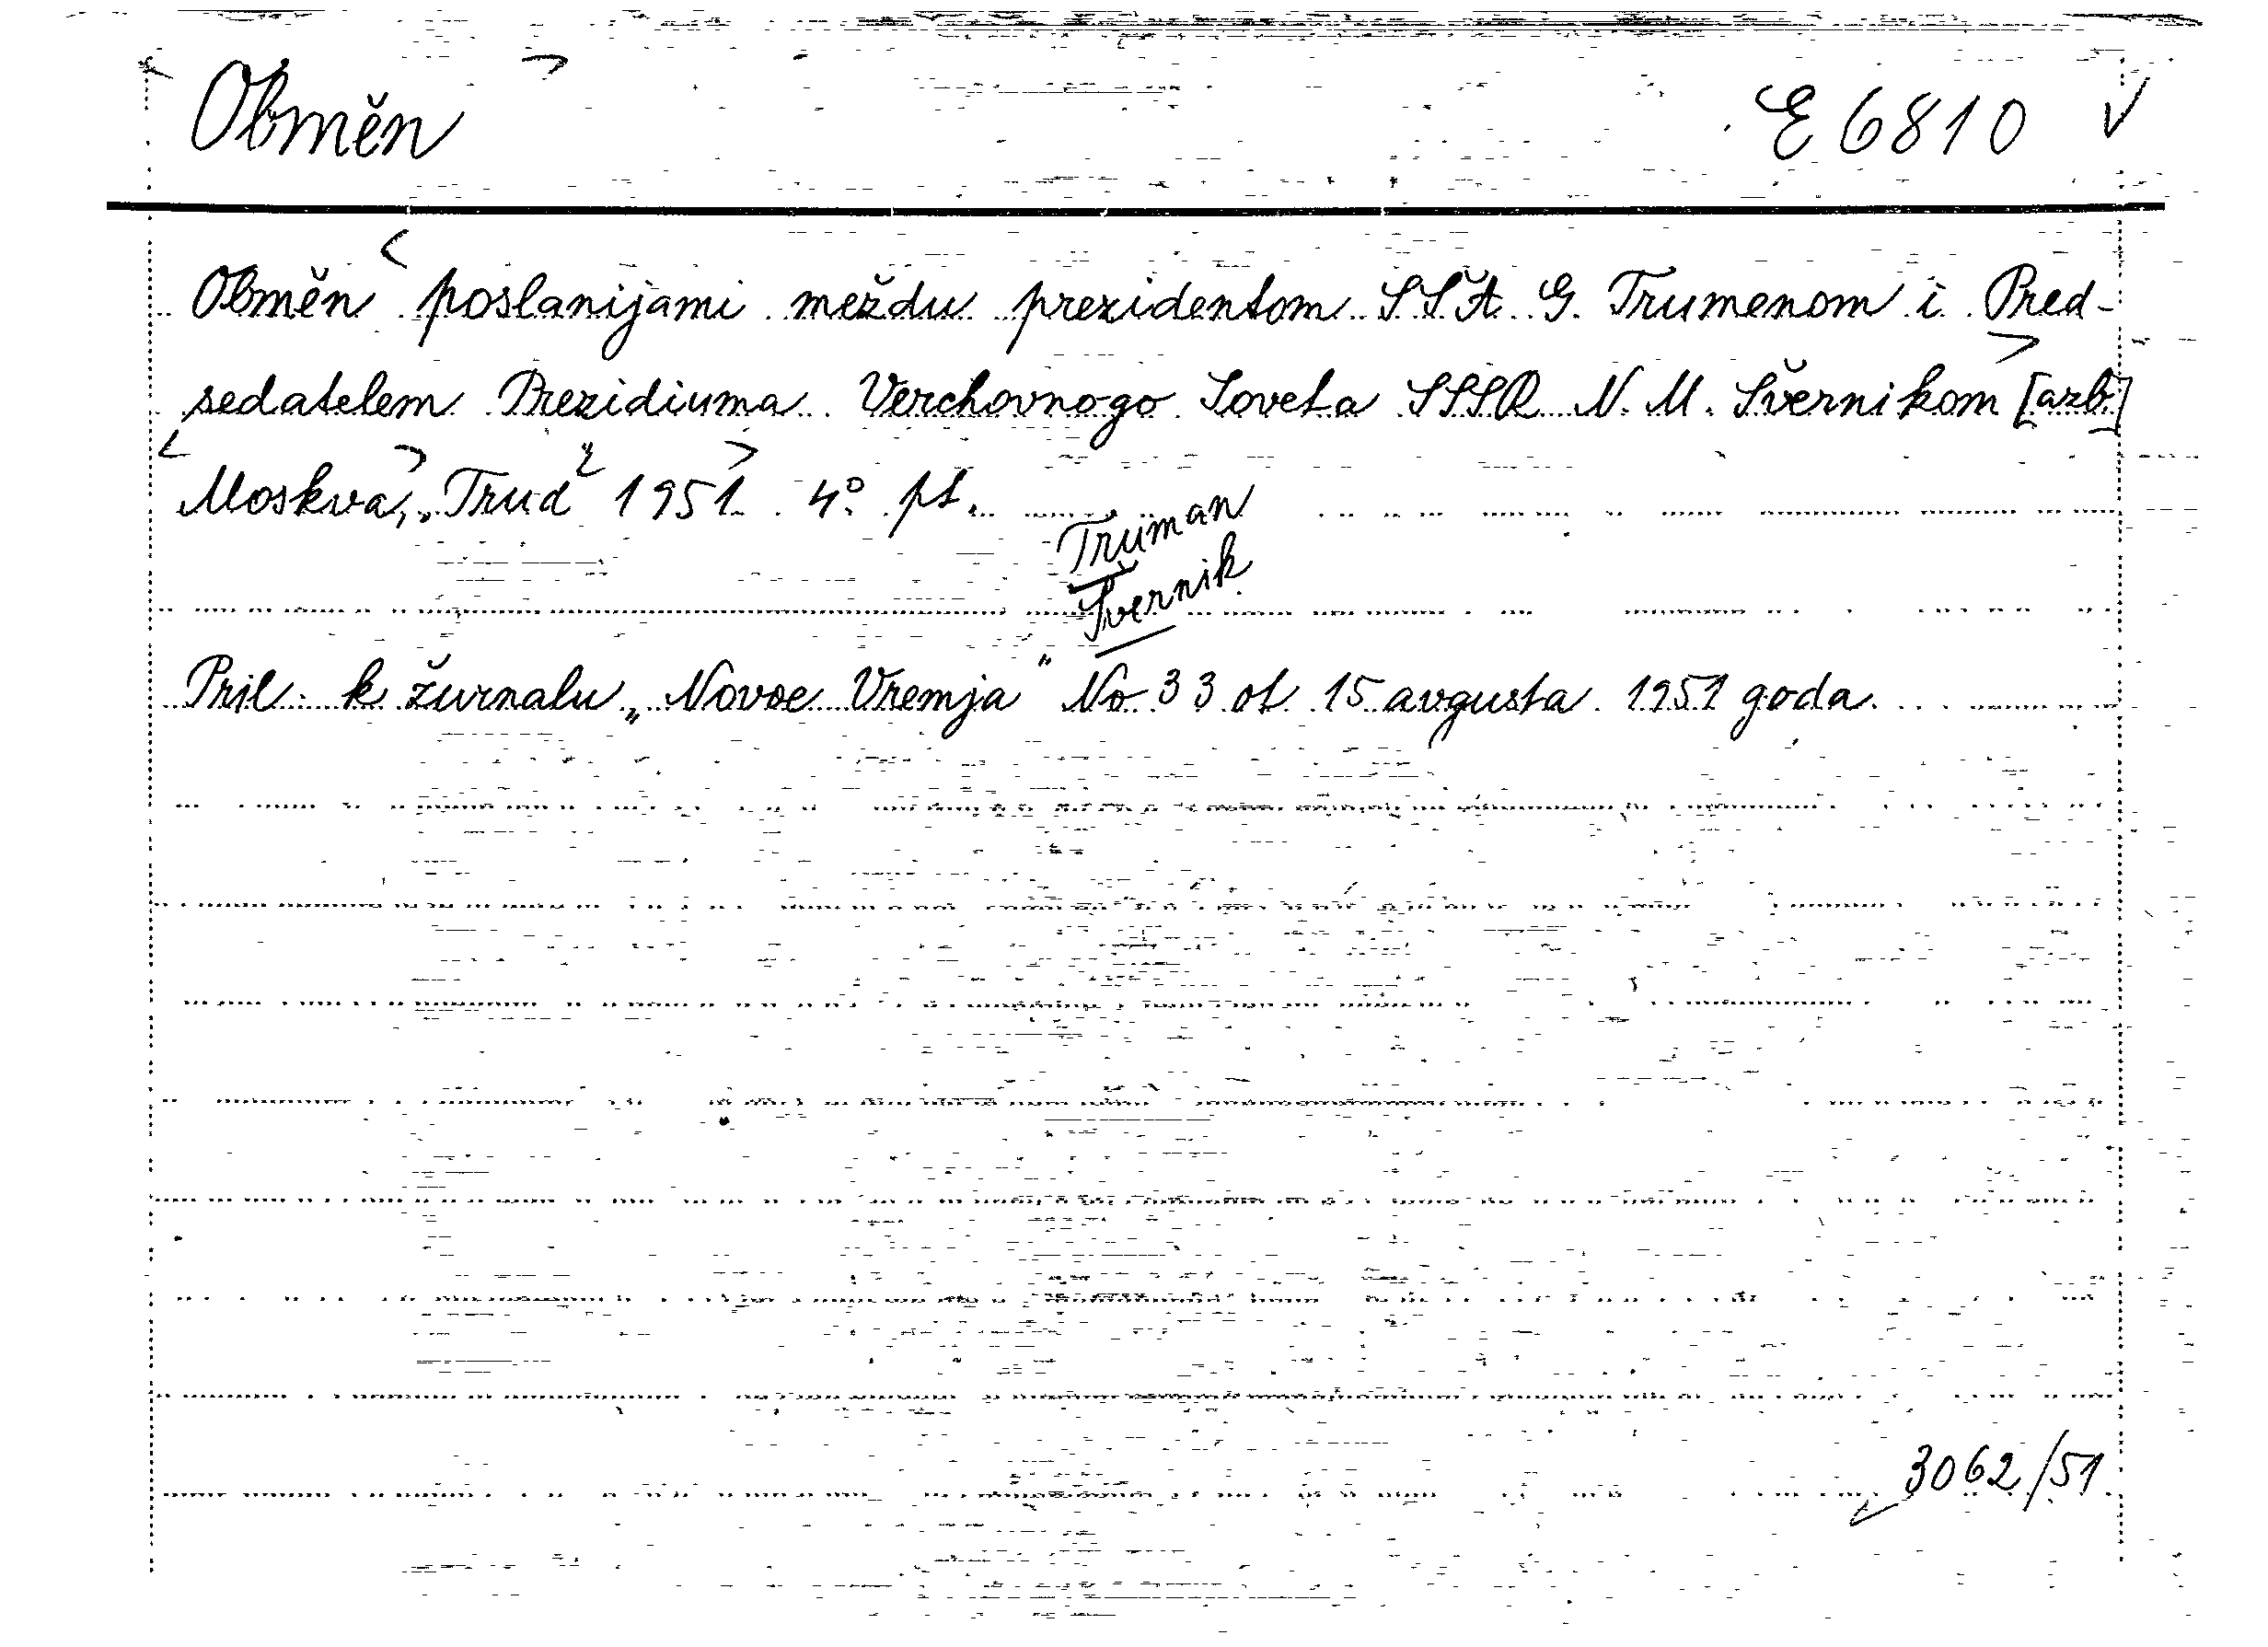 Obměn E 6810
Obměn poslanijami meždu prezidentom SŠA G. Trumenom i Pred-
sedatelem Prezidiuma Verchovnogo Soveta SSSR N. M. Švernikom [azb]
Moskva, „Trud" 1951. 4° pt.
Truman
Švernik
Pril. k žurnalu „Novoe Vremja" No 33 ot 15 avgusta 1951 goda.
3062/51